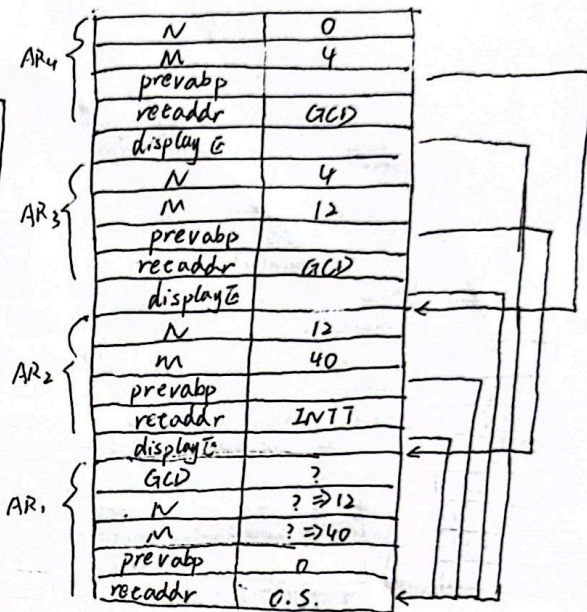 N 0
AR4 M 4
prevabp
retaddr GCD
display区
N 4
AR3 M 12
prevabp
retaddr GCD
display区
N 12
AR2 M 40
prevabp
retaddr INTT
display区
GCD ?
AR1 N ?⇒12
M ?⇒40
prevabp 0
retaddr O.S.